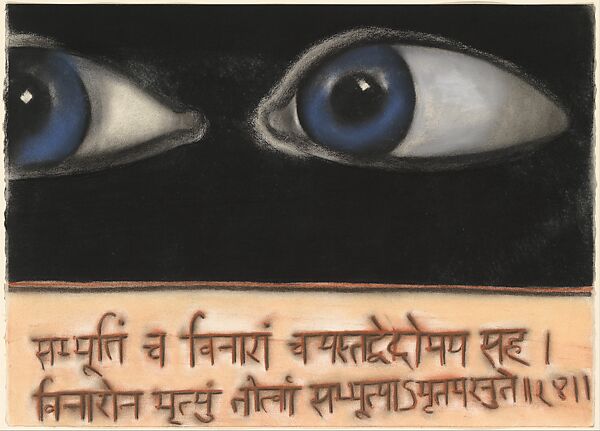 सम्भूतिं च विनाशं च यस्तद्वेदोभय सह ।
विनाशेन मृत्युं तीर्त्वा सम्भूत्याऽमृतमश्नुते॥१४॥